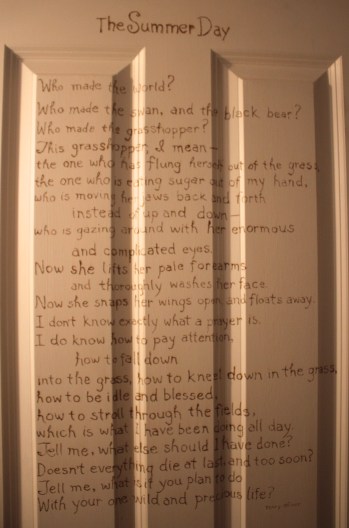 The Summer Day
Who made the world?
Who made the swan, and the black bear?
Who made the grasshopper?
This grasshopper, I mean—
the one who has flung herself out of the grass,
the one who is eating sugar out of my hand,
who is moving her jaws back and forth
instead of up and down—
who is gazing around with her enormous
and complicated eyes.
Now she lifts her pale forearms
and thoroughly washes her face.
Now she snaps her wings open and floats away.
I don't know exactly what a prayer is.
I do know how to pay attention,
how to fall down
into the grass, how to kneel down in the grass,
how to be idle and blessed,
how to stroll through the fields,
which is what I have been doing all day.
Tell me, what else should I have done?
Doesn't everything die at last and too soon?
Tell me, what is it you plan to do
With your one wild and precious life?
Mary Oliver